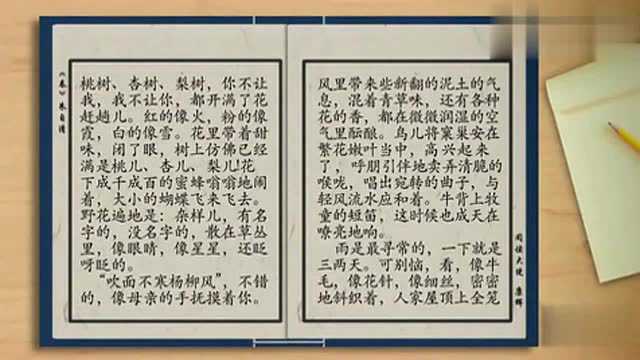 《春》朱自清
桃树、杏树、梨树，你不让
我，我不让你，都开满了花
赶趟儿。红的像火，粉的像
霞，白的像雪。花里带着甜
味，闭了眼，树上仿佛已经
满是桃儿、杏儿、梨儿！花
下成千成百的蜜蜂嗡嗡地闹
着，大小的蝴蝶飞来飞去。
野花遍地是：杂样儿，有名
字的，没名字的，散在草丛
里，像眼睛，像星星，还眨
呀眨的。
“吹面不寒杨柳风”，不错
的，像母亲的手抚摸着你。
风里带来些新翻的泥土的气
息，混着青草味，还有各种
花的香，都在微微润湿的空
气里酝酿。鸟儿将窠巢安在
繁花嫩叶当中，高兴起来
了，呼朋引伴地卖弄清脆的
喉咙，唱出宛转的曲子，与
轻风流水应和着。牛背上牧
童的短笛，这时候也成天在
嘹亮地响。
雨是最寻常的，一下就是
三两天。可别恼，看，像牛
毛，像花针，像细丝，密密
地斜织着，人家屋顶上全笼
阅读大使 康辉